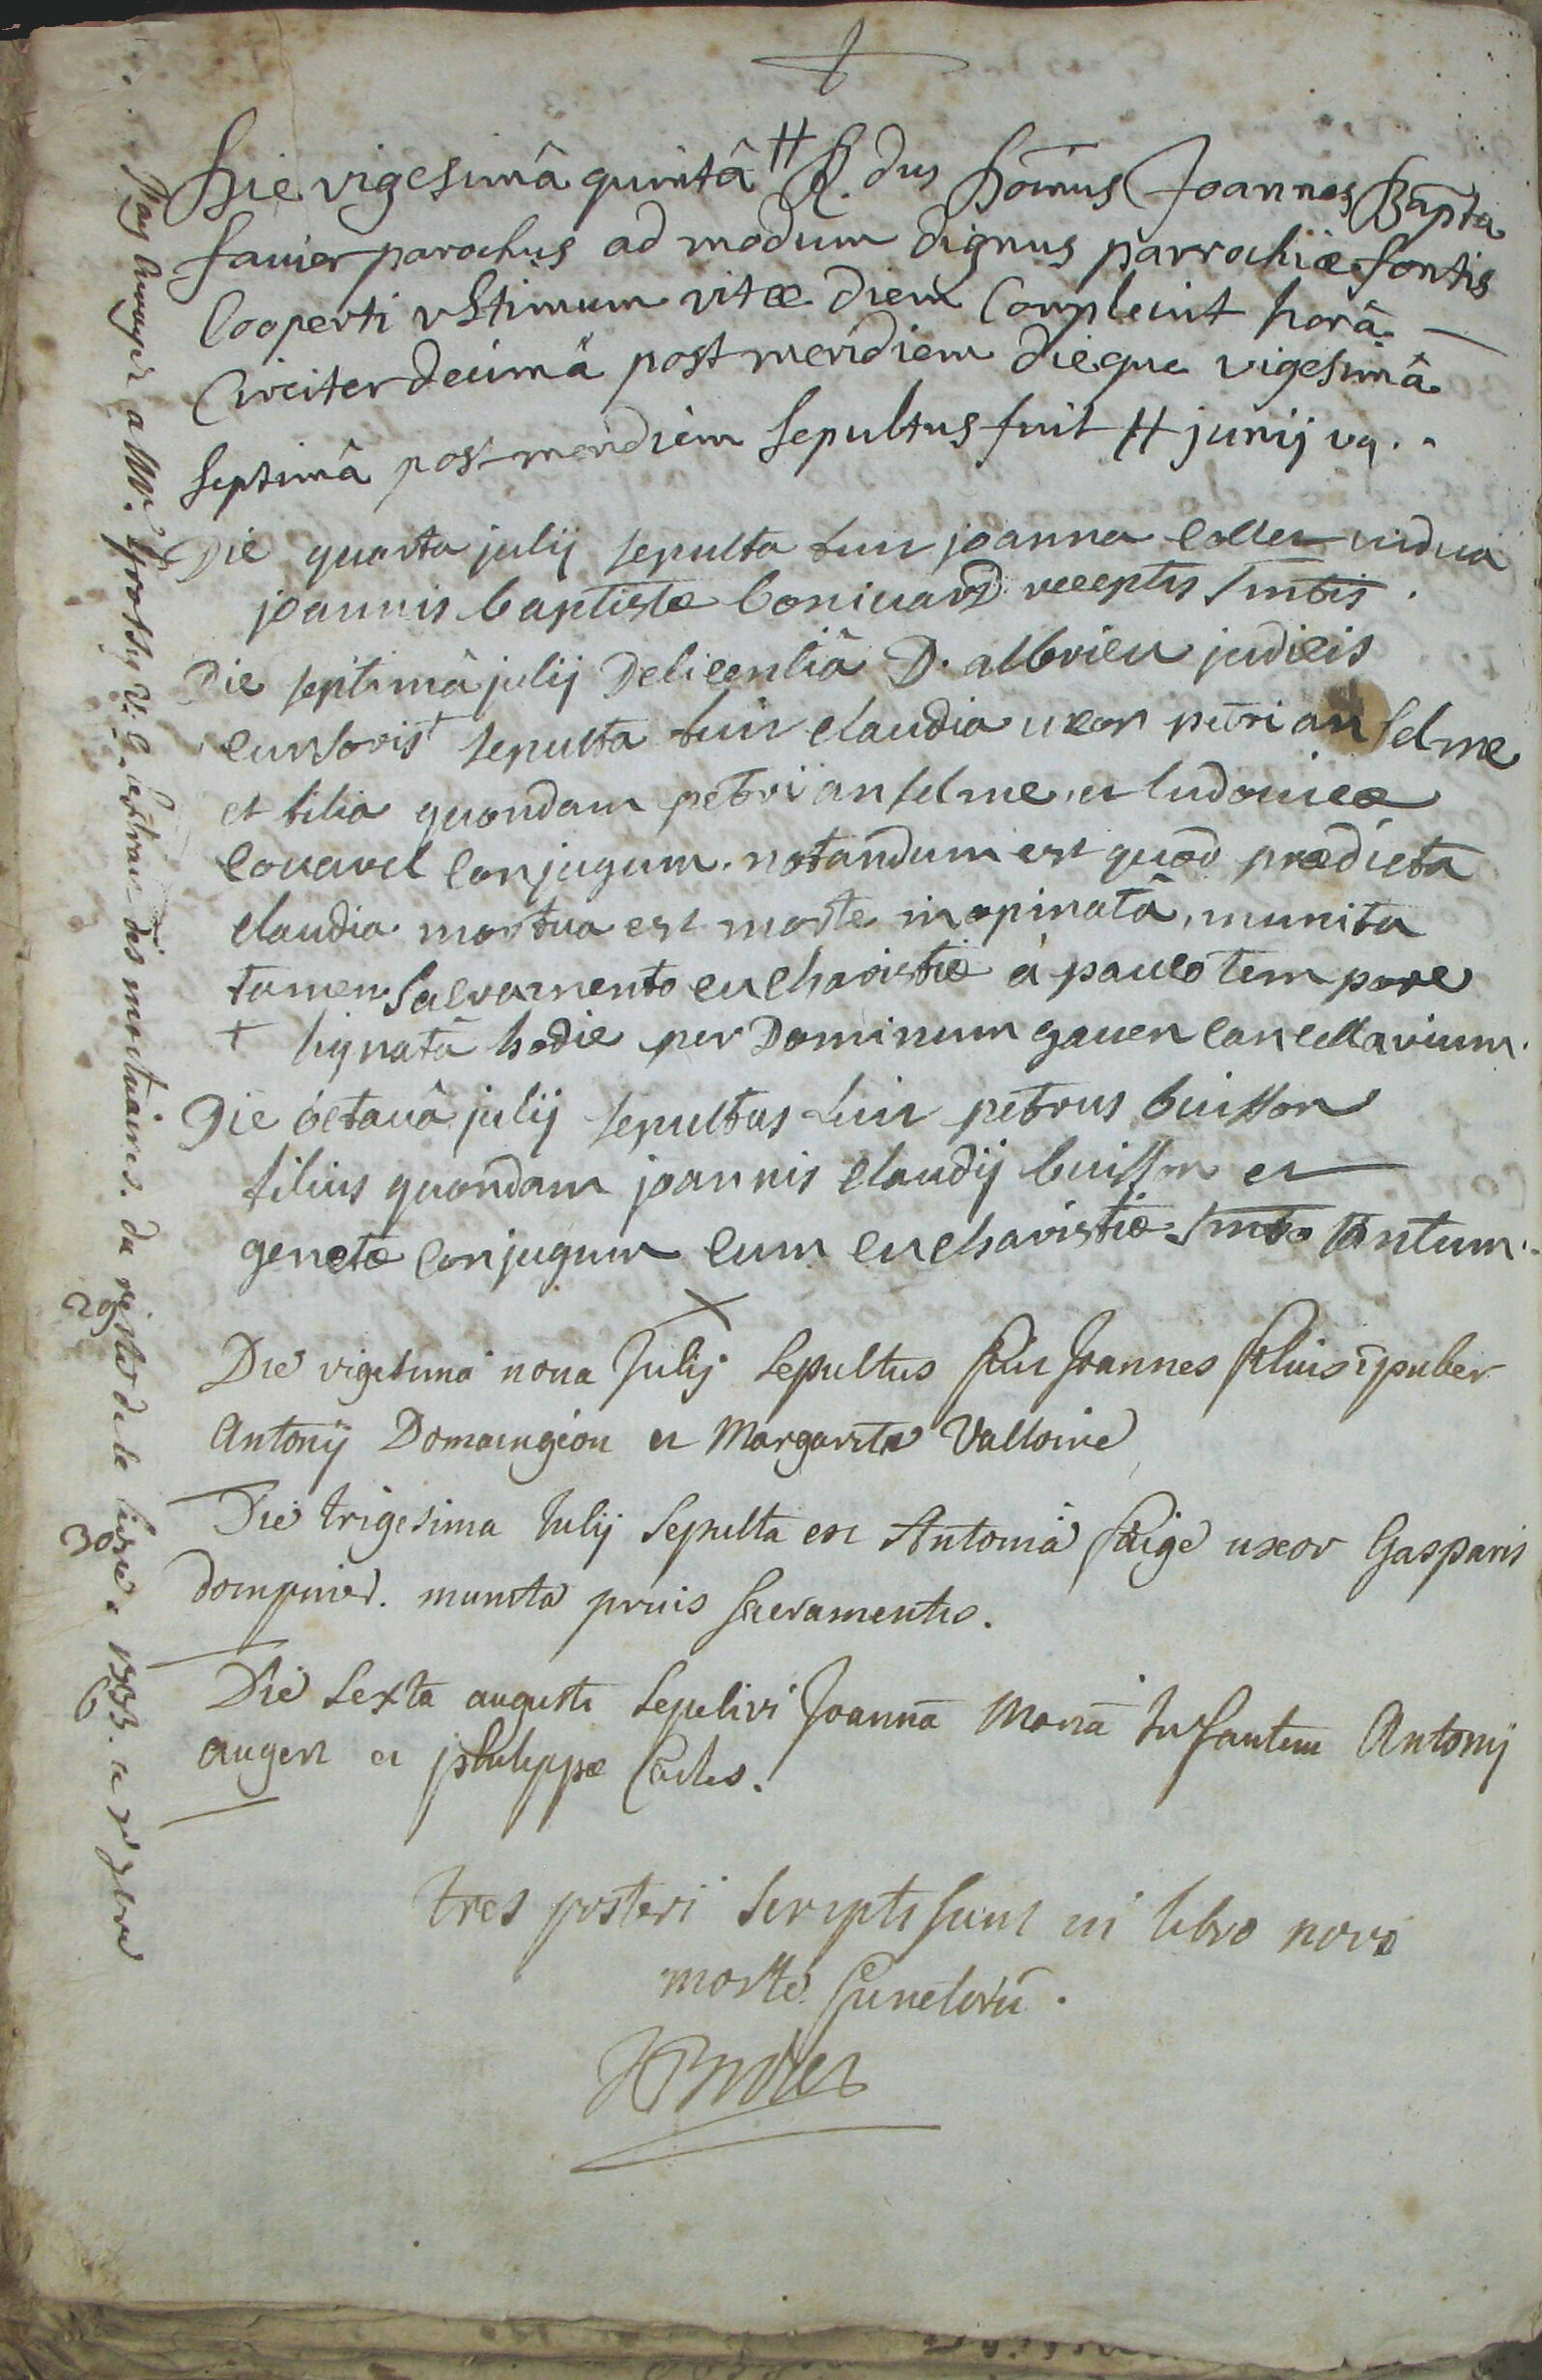 Die vigesimâ quintâ # R.dus Domus Joannes Bapta
favier parochus ad modum dignus parrochiæ fontis
Cooperti vltimum vitæ diem Compleuit horâ
Circiter decimâ post meridiem dieque vigesimâ
septimâ post meridiem sepultus fuit # junij
Die quarta julij sepulta fuit joanna collet vidua
joannis baptistæ boniuard receptis Smtis.
Die septimâ julij De licentiâ D. albrieu judicis
curvoris + sepulta fuit claudia uxor petri anselme
et filia quondam petri anselme et ludouicæ
couavel conjugum. notandum est quod prædicta
claudia mortua est morte inopinatâ, munita
tamen sacramento eucharistiæ à pauco tempore
+ signatâ hodie per Dominum gauen cancellarium.
Die octauâ julij sepultus fuit petrus buisson
filius quondam joannis claudij buisson et
genetæ conjugum cum eucharistiæ Smto tantum.
29
Die vigesima noua Julij Sepultus fuit Joannes filius īpuber
Antonij Domaingeon et Margaritæ Valloire
30
Die trigesima Julij Sepulta est Antonia faige uxor Gasparis
dompnier. munita prius sacramentis.
6
Die Sexta augusti Sepelivi Joannā Mariā Infantem Antonij
augert et philippæ Carles.
tres posteri scripti sunt in libro novo
morte functorū.
des mortuaires. du